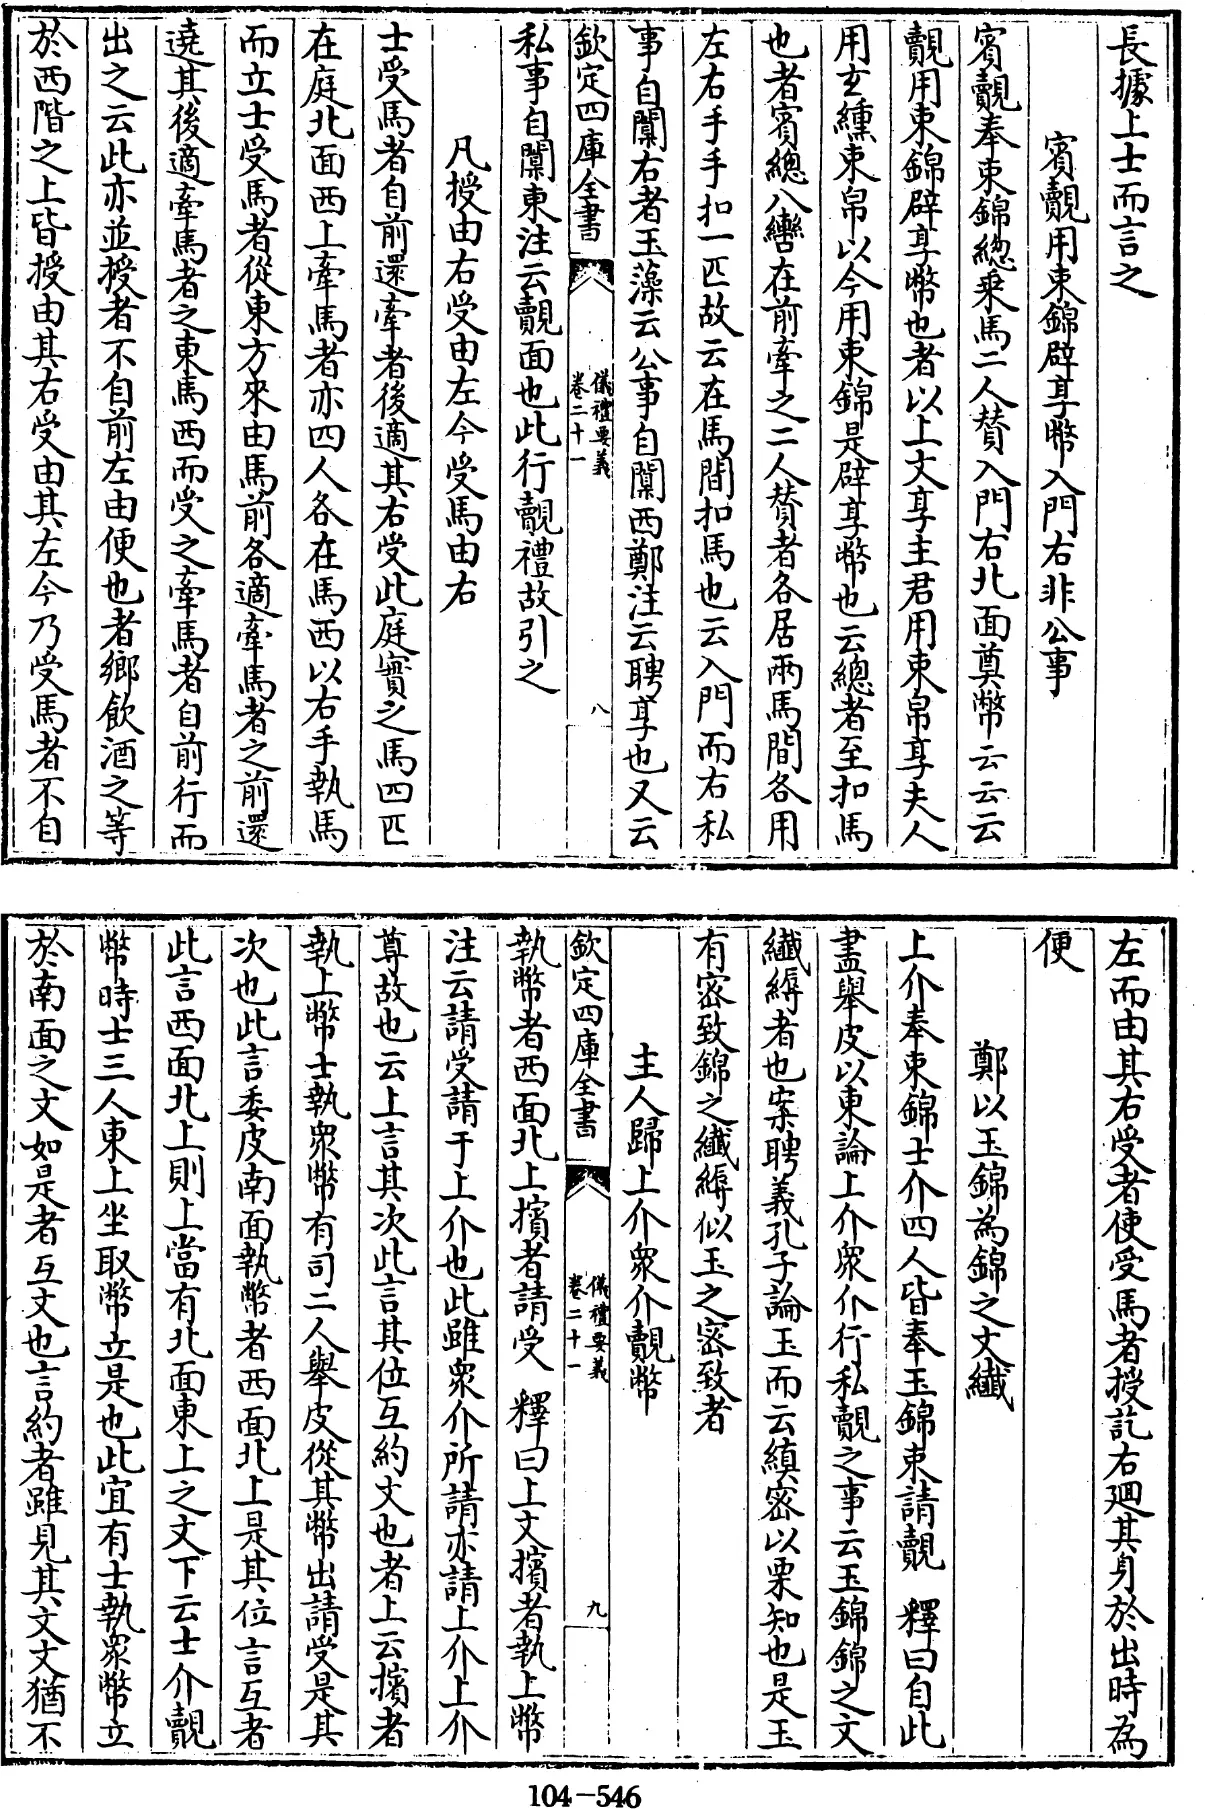 長據上士而言之
賓覿用束錦辟享幣入門右非公事
賓覿奉束錦總乘馬二人贊入門右北面奠幣云云云
覿用束錦辟享幣也者以上文享主君用束帛享夫人
用玄纁束帛以今用束錦是辟享幣也云總者至扣馬
也者賓總八轡在前牽之二人贊者各居兩馬間各用
左右手手扣一匹故云在馬間扣馬也云入門而右私
事自闑右者玉藻云公事自闑西鄭注云聘享也又云
欽定四庫全書
儀禮要義
卷二十一
八
私事自闑東注云覿面也此行覿禮故引之
凡授由右受由左今受馬由右
士受馬者自前還牽者後適其右受此庭實之馬四匹
在庭北面西上牽馬者亦四人各在馬西以右手執馬
而立士受馬者從東方來由馬前各適牽馬者之前還
遶其後適牽馬者之東馬西而受之牽馬者自前行而
出之云此亦並授者不自前左由便也者鄉飲酒之等
於西階之上皆授由其右受由其左今乃受馬者不自
左而由其右受者使受馬者授訖右廻其身於出時為
便
鄭以玉錦為錦之文纎
上介奉束錦士介四人皆奉玉錦束請覿 釋曰自此
盡舉皮以東論上介衆介行私覿之事云玉錦錦之文
纎縟者也案聘義孔子論玉而云縝密以栗知也是玉
有密致錦之纎縟似玉之密致者
主人歸上介衆介覿幣
欽定四庫全書
儀禮要義
卷二十一
九
執幣者西面北上擯者請受 釋曰上文擯者執上幣
注云請受請于上介也此雖衆介所請亦請上介上介
尊故也云上言其次此言其位互約文也者上云擯者
執上幣士執衆幣有司二人舉皮從其幣出請受是其
次也此言委皮南面執幣者西面北上是其位言互者
此言西面北上則上當有北面東上之文下云士介覿
幣時士三人東上坐取幣立是也此宜有士執衆幣立
於南面之文如是者互文也言約者雖見其文文猶不
104-546